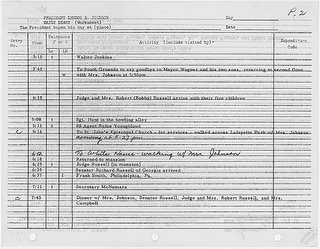 P. 2
PRESIDENT LYNDON B. JOHNSON
DAILY DIARY (Worksheet)
The President began his day at (place)
Day
Date
Entry No.
Time
Telephone f or t
Activity (include visited by)
Expenditure Code
3:15 t Walter Jenkins
3:45 To South Grounds to say goodbye to Mayor Wagner and his two sons, returning to second floor
with Mrs. Johnson at 3:50pm
4:10 Judge and Mrs. Robert (Bobby) Russell arrive with their five children
5:08 t Sgt. Hunt in the bowling alley
5:11 t SS Agent Rufus Youngblood
5:16 To St. John's Episcopal Church - for services - walked across Lafayette Park w/ Mrs. Johnson
arriving at 5:27 pm.
To White House - walking w/ Mrs Johnson
Returned to mansion
Judge Russell (in mansion)
Senator Richard Russell of Georgia arrived
Frank Smith, Philadelphia, Pa.
7:11 Secretary McNamara
7:45 Dinner w/ Mrs. Johnson, Senator Russell, Judge and Mrs. Robert Russell, and Mrs.
Campbell